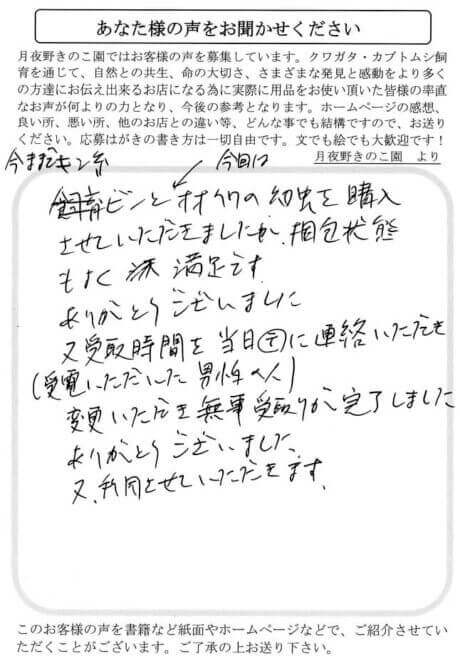 あなた様の声をお聞かせください
月夜野きのこ園ではお客様の声を募集しています。クワガタ・カブトムシ飼
育を通じて、自然との共生、命の大切さ、さまざまな発見と感動をより多く
の方達にお伝え出来るお店になる為に実際に用品をお使い頂いた皆様の率直
なお声が何よりの力となり、今後の参考となります。ホームページの感想、
良い所、悪い所、他のお店との違い等、どんな事でも結構ですので、お送り
ください。応募はがきの書き方は一切自由です。文でも絵でも大歓迎です！
月夜野きのこ園 より
今までキン糸 今回は
ビンとオオクワの幼虫を購入
させていただきましたが、梱包状態
もよく 満足です
ありがとうございました
又受取時間を当日㋢に連絡いただき
(受電いただいた男性の人)
変更いただき無事受取りが完了しました
ありがとうございました、
又、利用させていただきます、
このお客様の声を書籍など紙面やホームページなどで、ご紹介させてい
ただくことがございます。ご了承の上お送り下さい。